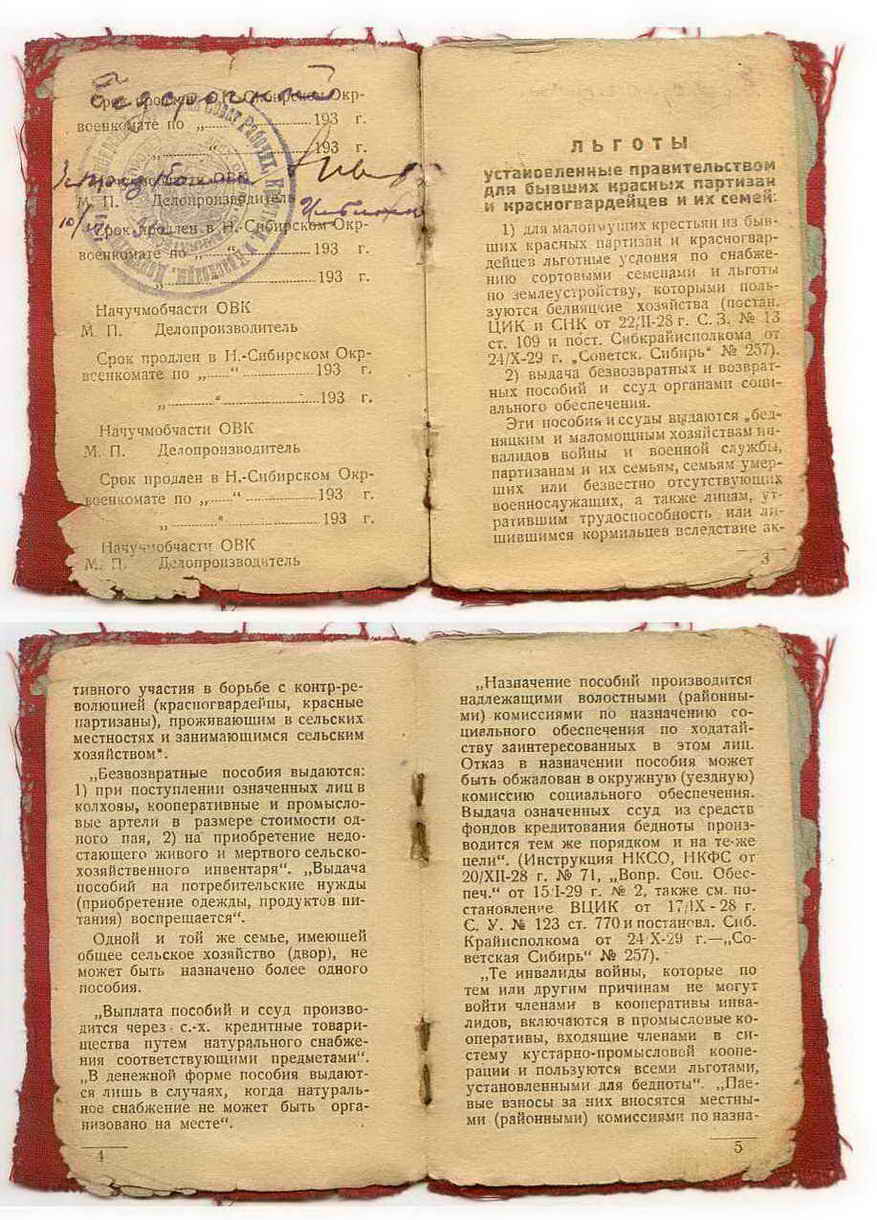 Срок продлен в Н.-Сибирском Окр-
военкомате по „......“ ..............193 г.
„......“ ..............193 г.
Начучмобчасти ОВК
М. П. Делопроизводитель
Срок продлен в Н.-Сибирском Окр-
военкомате по „......“ ..............193 г.
„......“ ..............193 г.
Начучмобчасти ОВК
М. П. Делопроизводитель
Срок продлен в Н.-Сибирском Окр-
военкомате по „......“ ..............193 г.
„......“ ..............193 г.
Начучмобчасти ОВК
М. П. Делопроизводитель
Срок продлен в Н.-Сибирском Окр-
военкомате по „......“ ..............193 г.
„......“ ..............193 г.
Начучмобчасти ОВК
М. П. Делопроизводитель
ЛЬГОТЫ
установленные правительством
для бывших красных партизан
и красногвардейцев и их семей:
1) для малоимущих крестьян из быв-
ших красных партизан и красногвар-
дейцев льготные условия по снабже-
нию сортовыми семенами и льготы
по землеустройству, которыми поль-
зуются бедняцкие хозяйства (постан.
ЦИК и СНК от 22/II-28 г. С. З. № 13
ст. 109 и пост. Сибкрайисполкома от
24/X-29 г. „Советск. Сибирь“ № 257).
2) выдача безвозвратных и возврат-
ных пособий и ссуд органами соци-
ального обеспечения.
Эти пособия и ссуды выдаются „бед-
няцким и маломощным хозяйствам ин-
валидов войны и военной службы,
партизанам и их семьям, семьям умер-
ших или безвестно отсутствующих
военнослужащих, а также лицам, ут-
ратившим трудоспособность или ли-
шившимся кормильцев вследствие ак-
3
тивного участия в борьбе с контр-ре-
волюцией (красногвардейцы, красные
партизаны), проживающим в сельских
местностях и занимающимся сельским
хозяйством“.
„Безвозвратные пособия выдаются:
1) при поступлении означенных лиц в
колхозы, кооперативные и промысло-
вые артели в размере стоимости од-
ного пая, 2) на приобретение недо-
стающего живого и мертвого сельско-
хозяйственного инвентаря“. „Выдача
пособий на потребительские нужды
(приобретение одежды, продуктов пи-
тания) воспрещается“.
Одной и той же семье, имеющей
общее сельское хозяйство (двор), не
может быть назначено более одного
пособия.
„Выплата пособий и ссуд произво-
дится через с.-х. кредитные товари-
щества путем натурального снабже-
ния соответствующими предметами“.
„В денежной форме пособия выдают-
ся лишь в случаях, когда натураль-
ное снабжение не может быть орга-
низовано на месте“.
4
„Назначение пособий производится
надлежащими волостными (районны-
ми) комиссиями по назначению со-
циального обеспечения по ходатай-
ству заинтересованных в этом лиц.
Отказ в назначении пособия может
быть обжалован в окружную (уездную)
комиссию социального обеспечения.
Выдача означенных ссуд из средств
фондов кредитования бедноты произ-
водится тем же порядком и на те-же
цели“. (Инструкция НКСО, НКФС от
20/XII-28 г. № 71, „Вопр. Соц. Обес-
печ.“ от 15/I-29 г. № 2, также см. по-
становление ВЦИК от 17/IX-28 г.
С. У. № 123 ст. 770 и постановл. Сиб.
Крайисполкома от 24/X-29 г.—„Со-
ветская Сибирь“ № 257).
„Те инвалиды войны, которые по
тем или другим причинам не могут
войти членами в кооперативы инва-
лидов, включаются в промысловые ко-
оперативы, входящие членами в си-
стему кустарно-промысловой коопе-
рации и пользуются всеми льготами,
установленными для бедноты“. „Пае-
вые взносы за них вносятся местны-
ми (районными) комиссиями по назна-
5